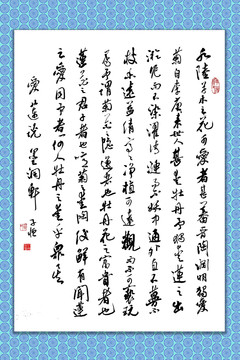 水陸草木之花可愛者甚蕃晉陶淵明獨愛
菊自李唐來世人甚愛牡丹予獨愛蓮之出
淤泥而不染濯清漣而不妖中通外直不蔓不
枝香遠益清亭亭淨植可遠觀而不可褻玩
焉予謂菊花之隱逸者也牡丹花之富貴者也
蓮花之君子者也噫菊之愛陶後鮮有聞蓮
之愛同予者何人牡丹之愛宜乎眾矣
愛蓮説 墨潤軒